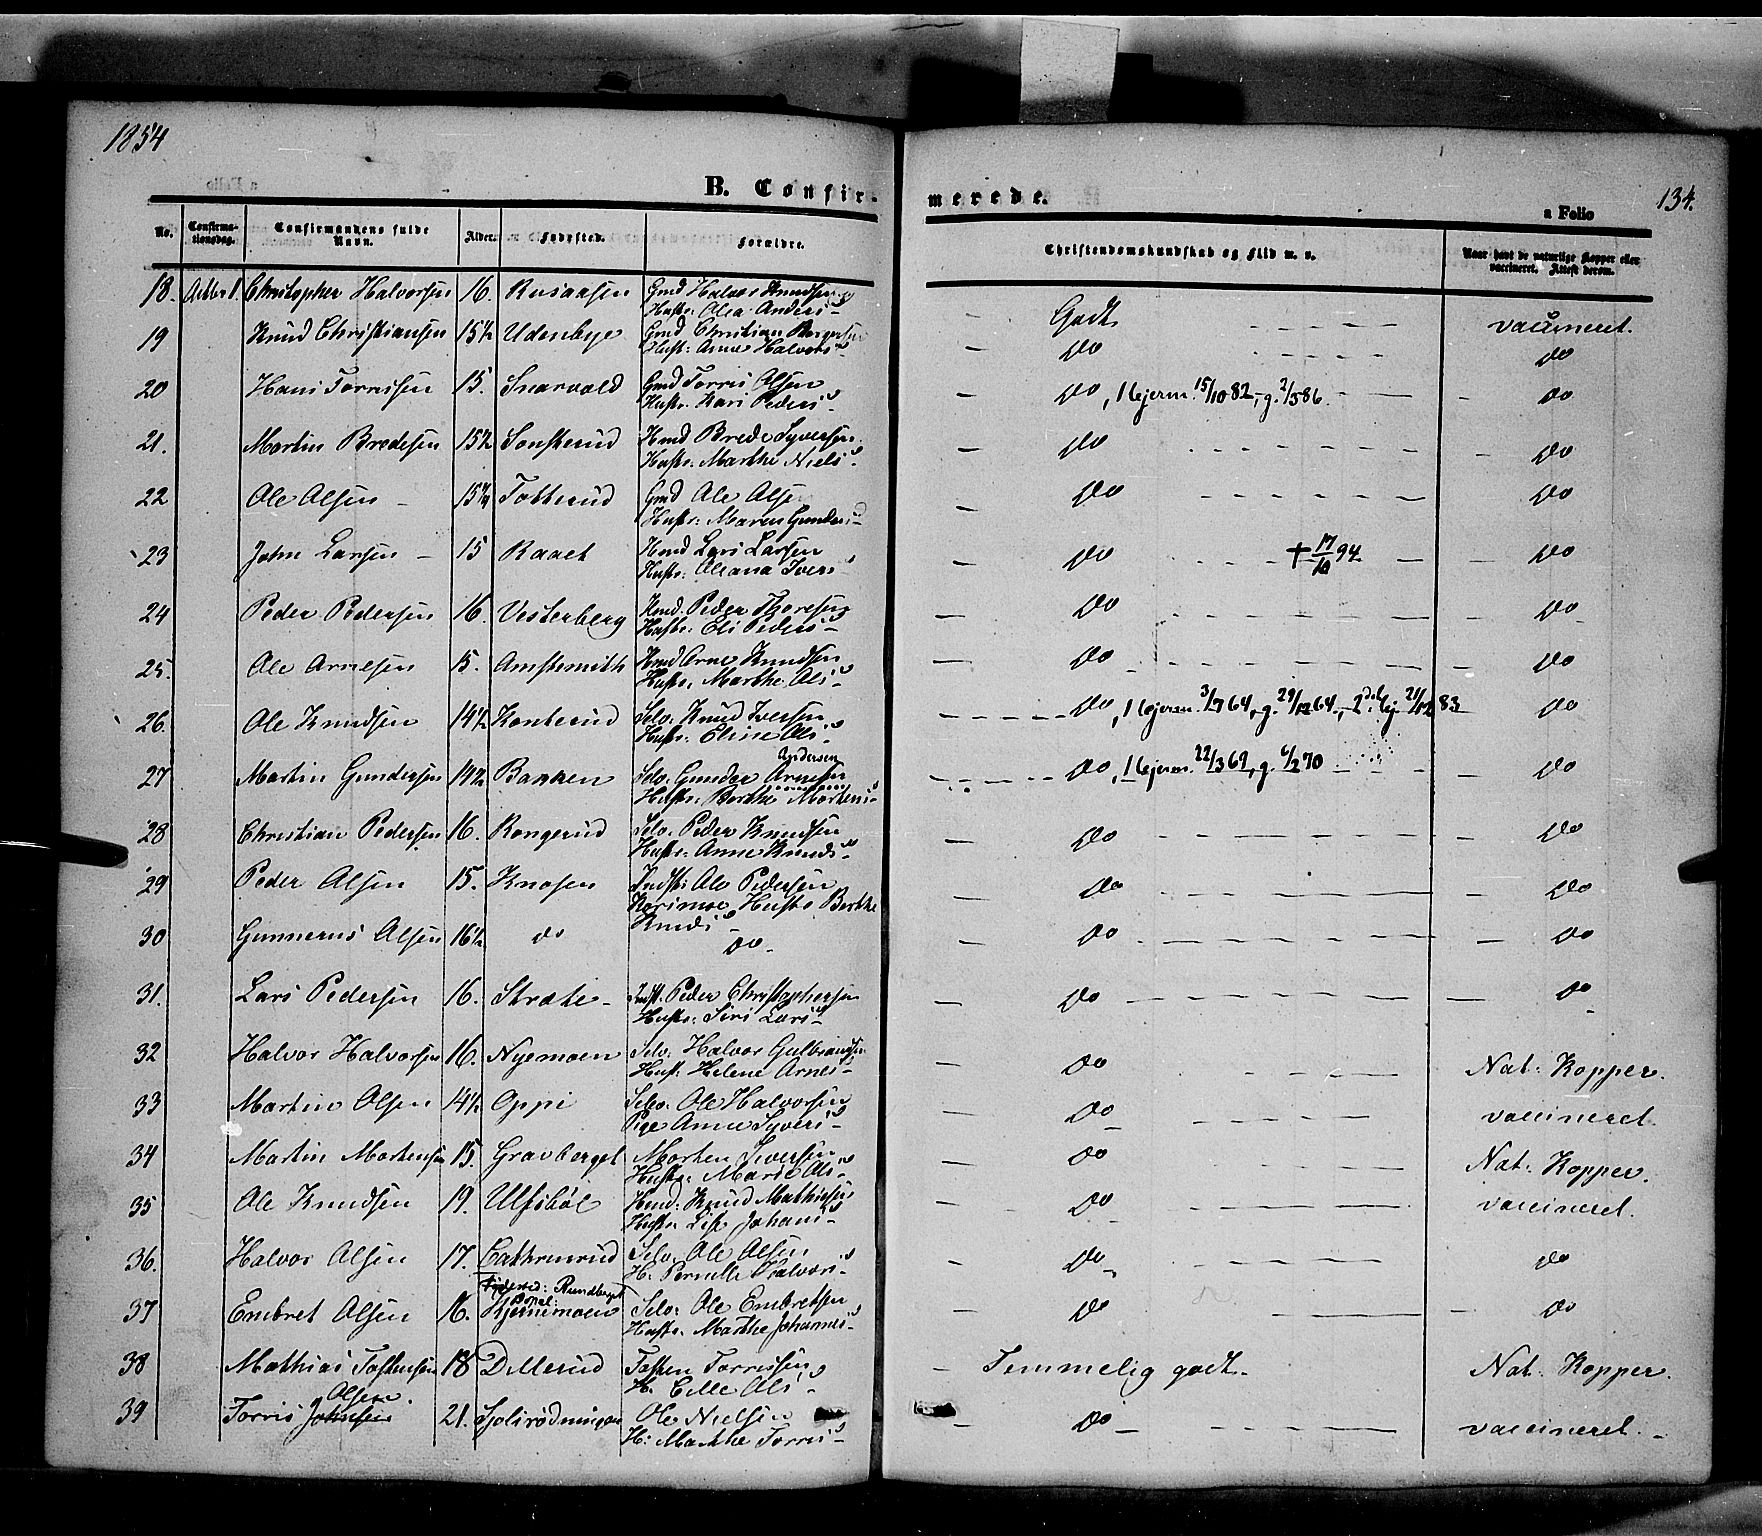 1854
B. Confir-
merede.
a Folio
134.
No.
Confirma-
tionsdag.
Confirmandens fulde
Navn.
Alder.
Fødested.
Forældre.
Christendomskundskab og Flid m. v.
Naar havt de naturlige Kopper eller
vaccineret. Attest derom.
18. Octbr 1. Christopher Halvorsen 16. Rusaasen Gmd Halvor Knudsen
Hustr. Olea Anders Godt vaccineret.
19 Knud Christiansen 15½ Udenbye Gmd Christian
Hustr: Anne Halvors Do Do
20 Hans Torrissen 15. Snarvold Gmd Torris Olsen
Hustr. Kari Peders Do, 1 lejerm. 15/10 82, g. 2/5 86. Do
21. Martin Bredesen 15½ Sonsterud Hmd Brede Syversen
Hustr. Marthe Niels Do Do
22 Ole Olsen 15½ Totterud Gmd Ole Olsen
Hustr: Maren Gunders Do Do
23 John Larsen 15 Raaet Hmd Lars Larsen
Hustr: Oleana Ivers Do + 17/10 94 Do
24 Peder Pedersen 16. Vesterberg Hmd. Peder Thoresen
Hustr: Eli Peders Do Do
25. Ole Arnesen 15. Hmd Arne Knudsen
Hustr. Marthe Ols Do Do
26. Ole Knudsen 14½ Konterud Selv. Knud Iversen
Hustr: Eline Ols Do, 1 lejerm. 3/7 64, g. 29/12 64, 2det lej 21/12 83 Do
Andersen
27 Martin Gundersen 14½ Bakken Selv. Gunder Arnesen
Hustr: Berthe Mortens Do, 1 lejerm. 22/3 69, g. 6/2 70 Do
28 Christian Pedersen 16. Rongerud Selv. Peder Knudsen
Hustr: Anne Knuds Do Do
29 Peder Olsen 15. Knosen Indstr. Ole Pedersen
Korsmoe Hustr Berthe
Knuds Do Do
30 Gunnerus Olsen 16½ do do Do Do
31. Lars Pedersen 16. Stræte Indst. Peder Christophersen
Hustr: Siri Lars Do Do
32 Halvor Halvorsen 16. Nyemoen Selv. Halvor Gulbrandsen
Hust: Helene Arnes Do Nat: Kopper.
33 Martin Olsen 14½ Oppi Selv. Ole Halvorsen
Pige Anne Syvers Do vaccineret.
34 Martin Mortensen 15. Gravberget Morten Iversen
Hustr: Marie Ols Do Nat: Kopper.
35 Ole Knudsen 19. Ulfsböl Hmd: Knud Mathisen
Hustr Lise Johans Do vaccineret.
36. Halvor Olsen 17. Cathrinrud Selv. Ole Olsen
H: Pernille Halvors Do Do
Födested: Rundberget
Bopæl:
37 Embret Olsen 16. Kjernmoen Selv: Ole Embretsen
Hustr: Marthe Johannes Do Do
38 Mathias Tostensen 18 Dillerud Tosten Torrissen
H: Eille Ols Temmelig godt. Nat: Kopper.
Olsen
39 Torris Johnsen 21. Sjolirödningen Ole Nielsen
H: Marthe Torris Do vaccineret.